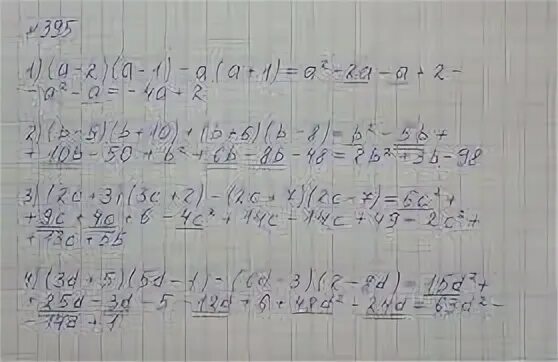 № 395
1) (a-2)(a-1) - a(a+1) = a² - 2a - a + 2 -
- a² - a = -4a + 2
2) (b-5)(b+10) + (b+6)(b-8) = b² - 5b +
+ 10b - 50 + b² + 6b - 8b - 48 = 2b² + 3b - 98
3) (2c+3)(3c+2) - (2c+7)(2c-7) = 6c² +
+ 9c + 4c + 6 - 4c² + 14c - 14c + 49 = 2c² +
+ 13c + 55
4) (3d+5)(5d-1) - (6d-3)(2-8d) = 15d² +
+ 25d - 3d - 5 - 12d + 6 + 48d² - 24d = 63d² -
- 14d + 1